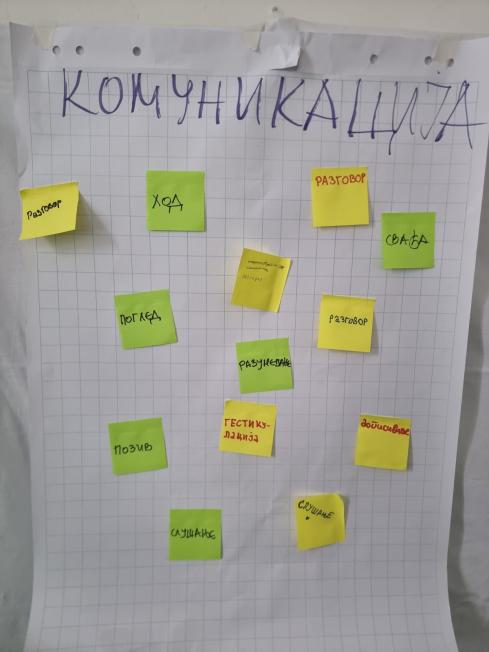 КОМУНИКАЦИЈА
Разговор
ХОД
РАЗГОВОР
СВАЂА
ПОГЛЕД
РАЗГОВОР
РАЗУМЕВАЊЕ
ГЕСТИКУ-
ЛАЦИЈА
дописивање
ПОЗИВ
СЛУШАЊЕ
СЛУШАЊЕ